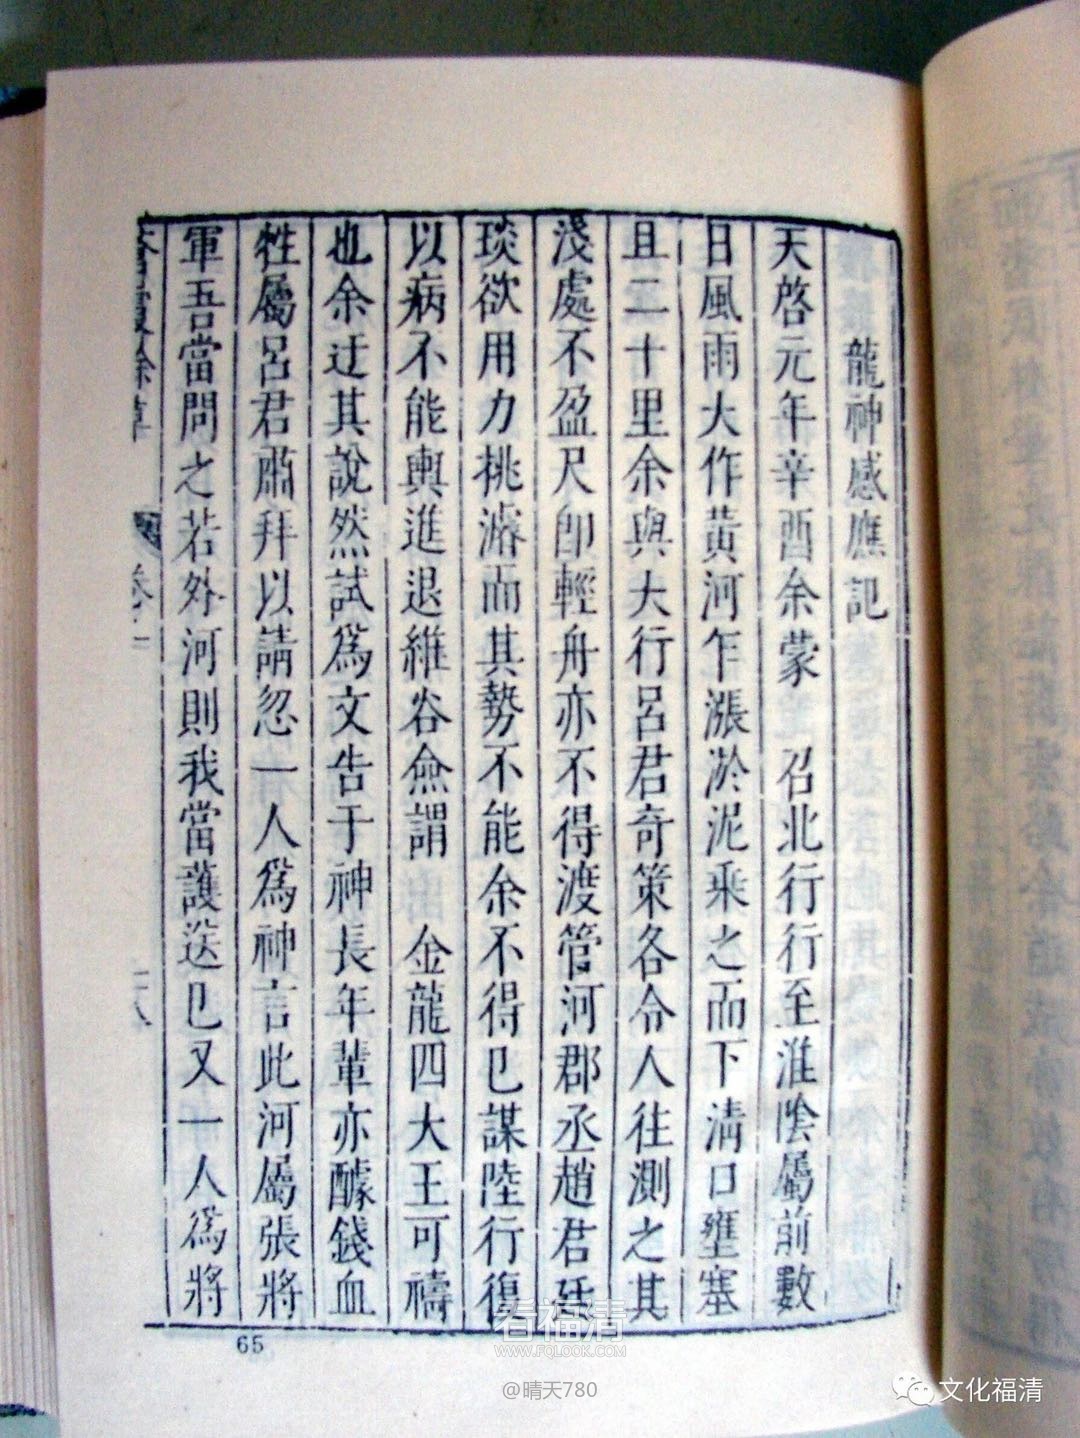 龍神感應記
天啓元年辛酉余蒙　召北行行至淮陰屬前數
日風雨大作黃河乍漲淤泥乘之而下清口壅塞
且二十里余與大行呂君奇策各令人往測之其
淺處不盈尺卽輕舟亦不得渡管河郡丞趙君廷
琰欲用力挑濬而其勢不能余不得已謀陸行復
以病不能輿進退維谷僉謂　金龍四大王可禱
也余迂其說然試爲文告于神長年輩亦醵錢血
牲屬呂君肅拜以請忽一人爲神言此河屬張將
軍吾當問之若外河則我當護送已又一人爲將
蒼霞餘草
卷
65
看福清
WWW.FQLOOK.COM
@晴天780
文化福清